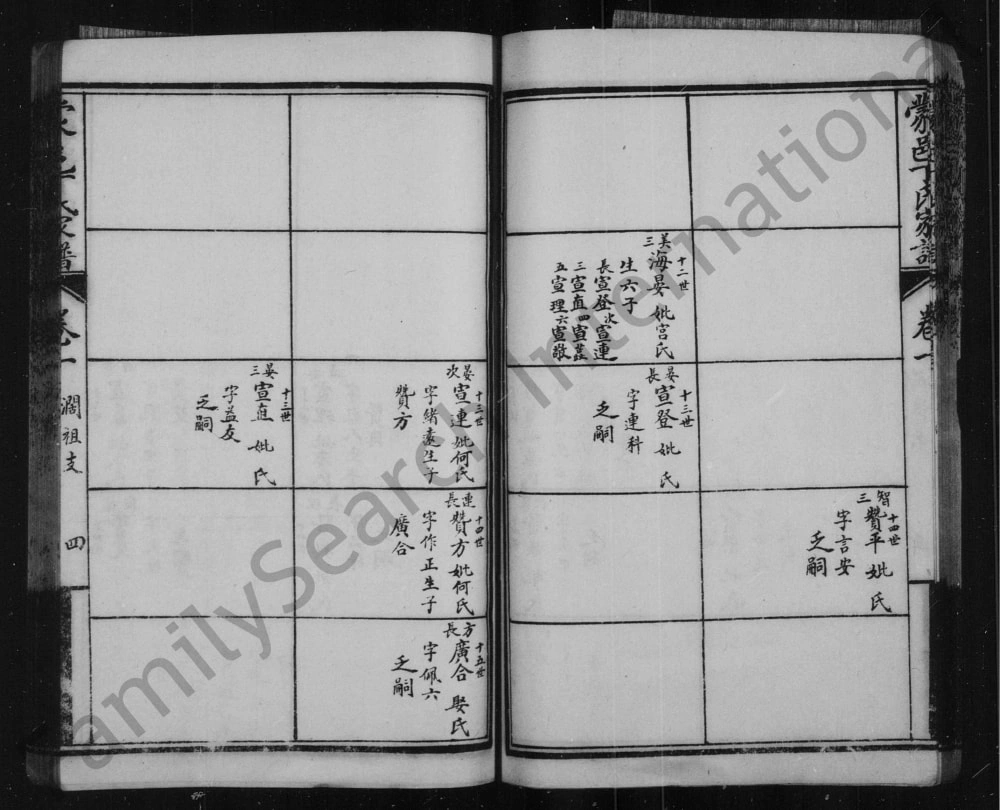 卷一
智三
十四世
贊平 妣 氏
字言安
乏嗣
美三
十二世
海晏 妣宫氏
生六子
長宣登次宣連
三宣直四宣
五宣理六宣敬
晏長
十三世
宣登 妣 氏
字連科
乏嗣
晏次
十三世
宣連 妣何氏
字緒遠生子
贊方
連長
十四世
贊方 妣何氏
字作正生子
廣合
方長
十五世
廣合 娶氏
字佩六
乏嗣
晏三
十三世
宣直 妣 氏
字益友
乏嗣
濶祖支
四
FamilySearch International